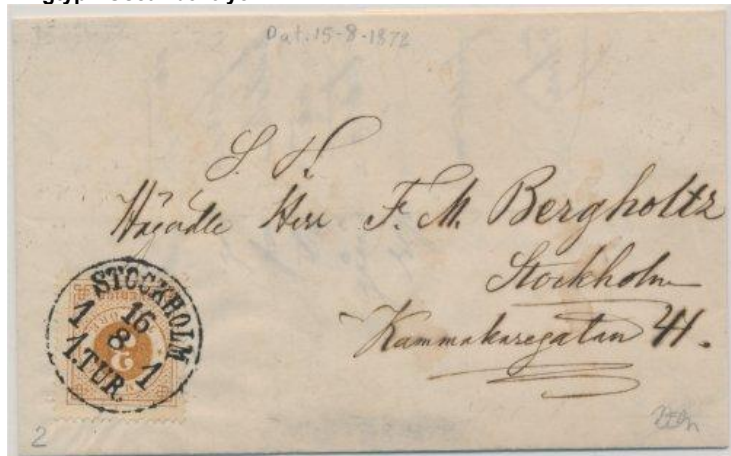 Dat. 15-8-1872
S. H.
Herr F. M. Bergholtz
Stockholm
Kammakaregatan 41.
STOCKHOLM
1 16 1
8
1.TUR.
2
2